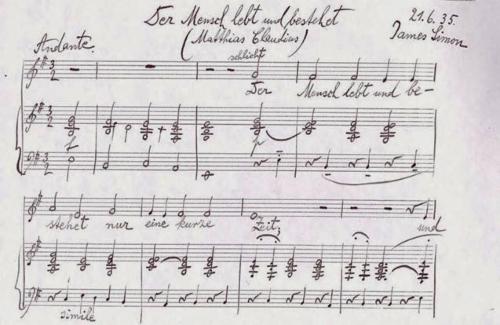 Der Mensch lebt und bestehet
21.6.35.
(Matthias Claudius)
James Simon
Andante.
schlicht
Der Mensch lebt und be-
f
p
stehet nur eine kurze Zeit; und
simile